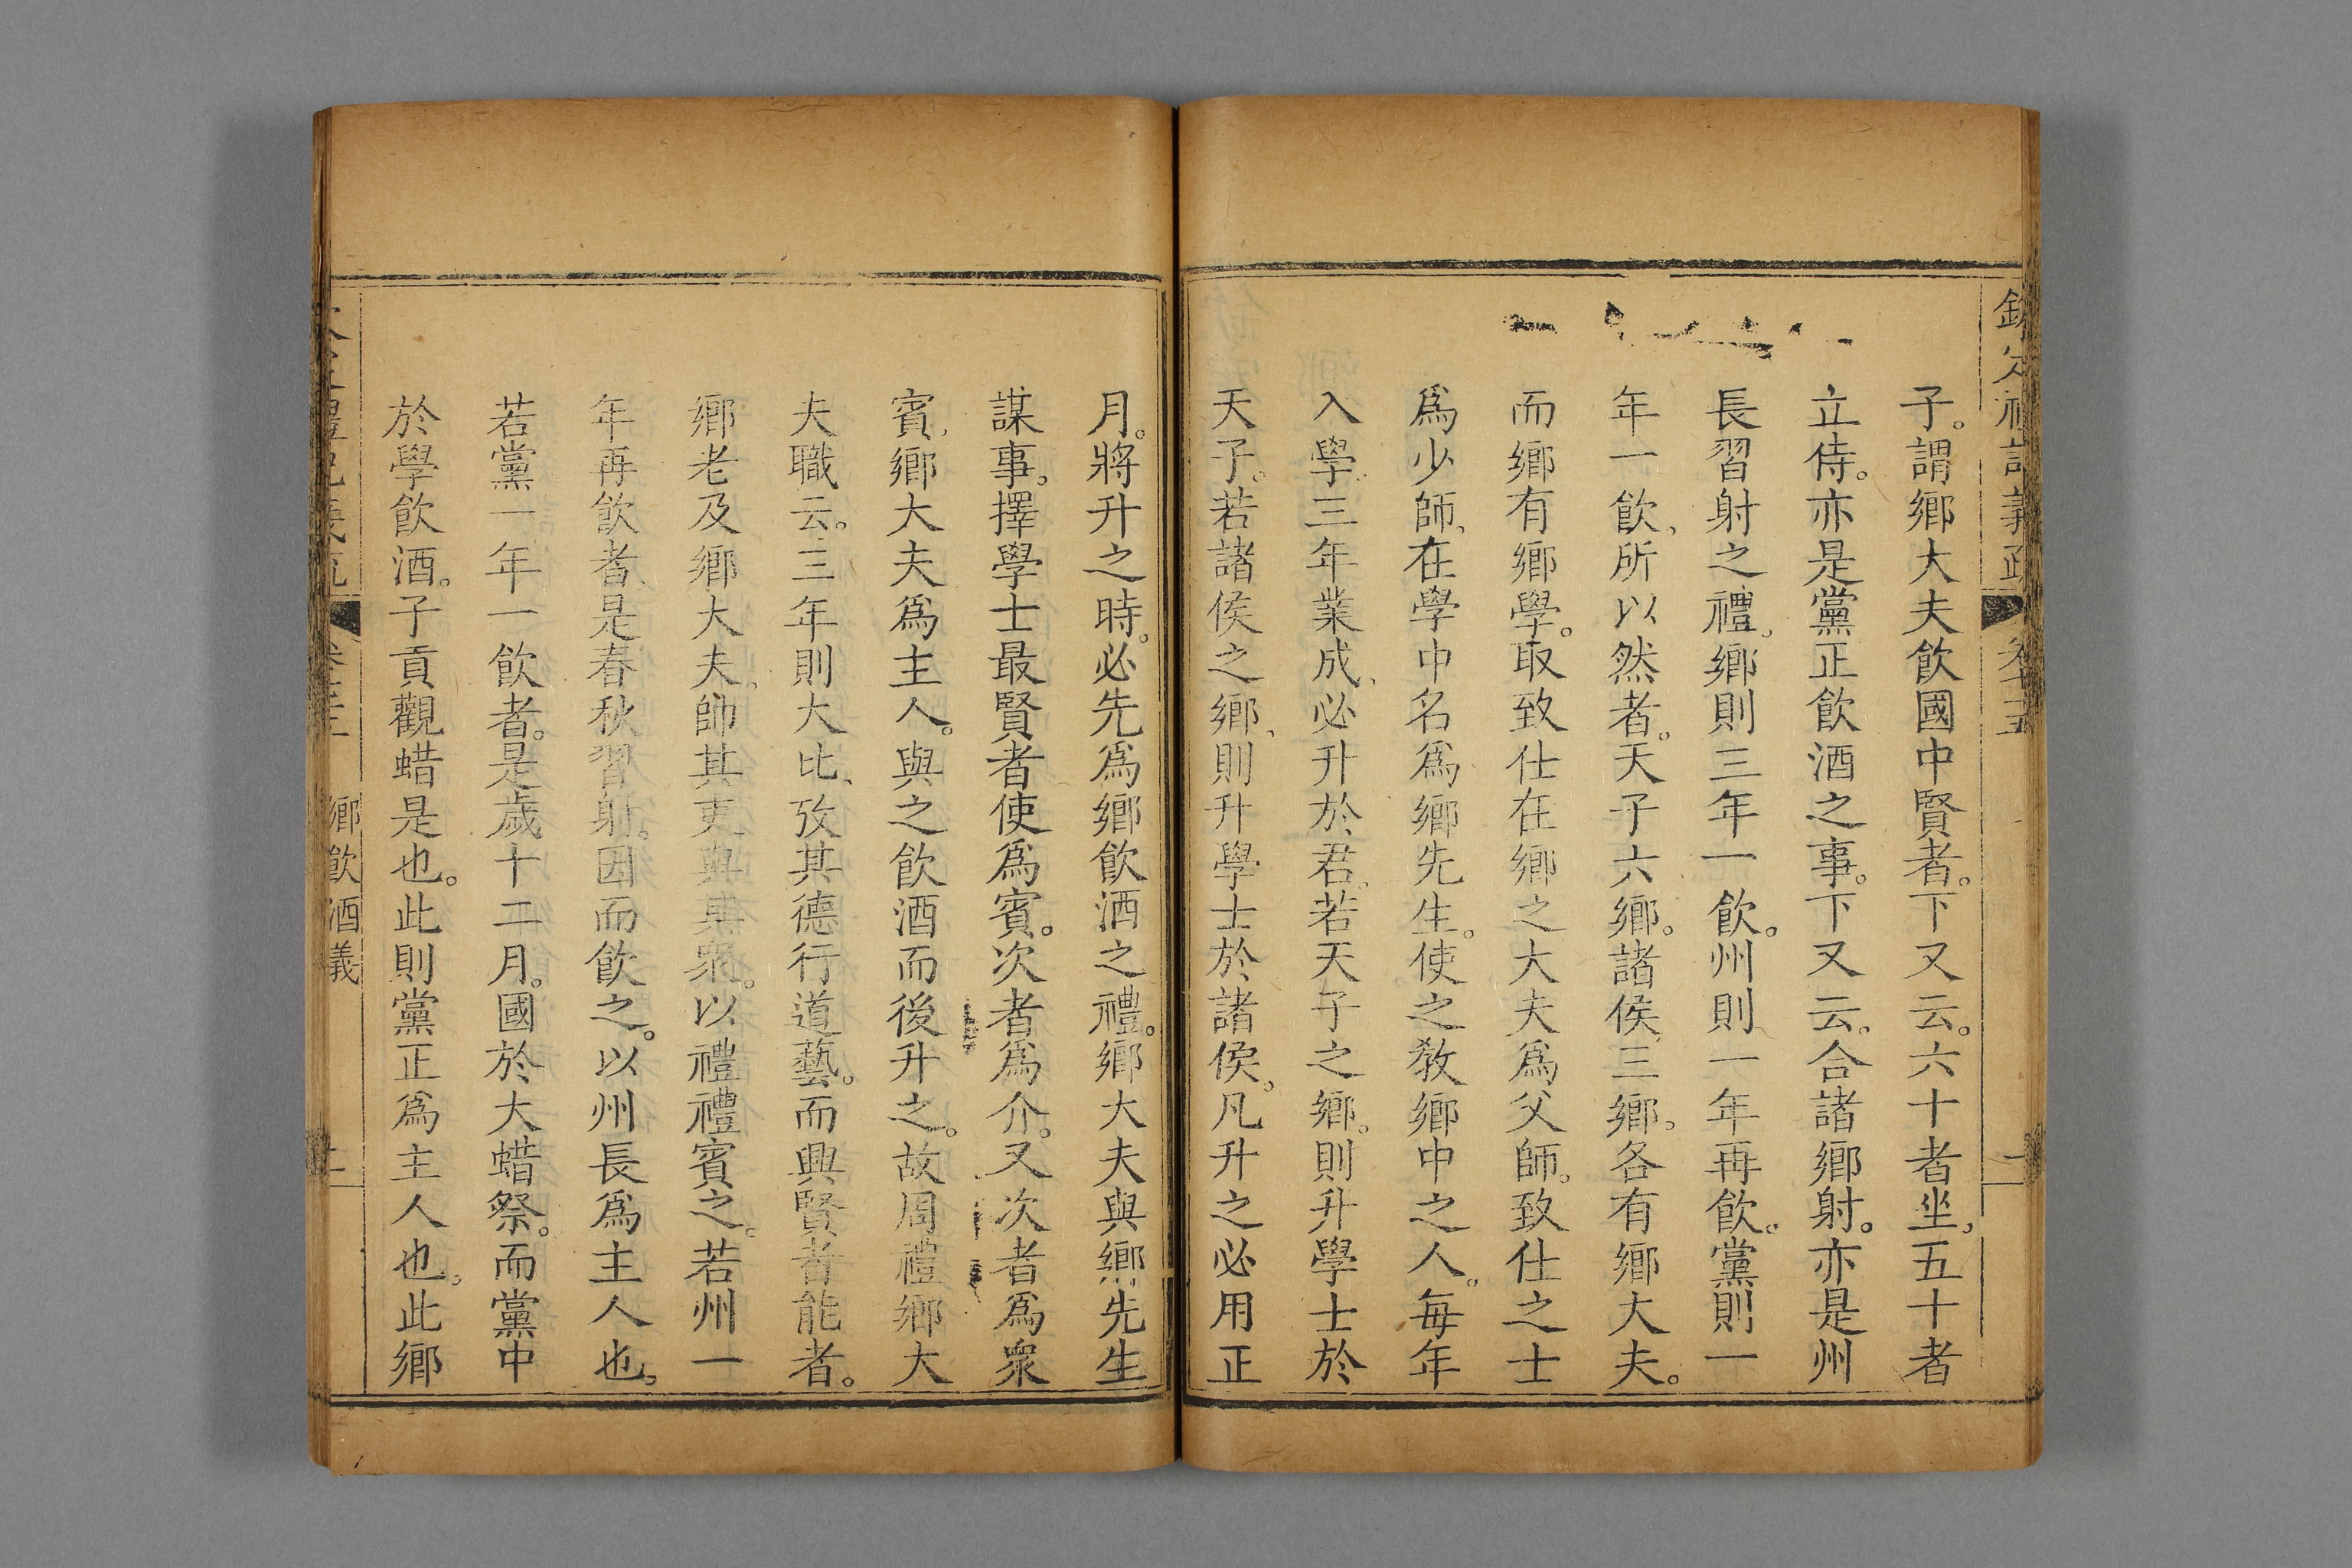 子。謂鄉大夫飲國中賢者。下又云。六十者坐。五十者
立侍。亦是黨正飲酒之事。下又云。合諸鄉射。亦是州
長習射之禮。鄉則三年一飲。州則一年再飲。黨則一
年一飲、所以然者。天子六鄉。諸侯三鄉。各有鄉大夫。
而鄉有鄉學。取致仕在鄉之大夫爲父師。致仕之士
爲少師、在學中名爲鄉先生。使之教鄉中之人。每年
入學、三年業成、必升於君、若天子之鄉。則升學士於
天子。若諸侯之鄉、則升學士於諸侯。凡升之必用正
月。將升之時。必先爲鄉飲酒之禮。鄉大夫與鄉先生
謀事。擇學士最賢者使爲賓。次者爲介。又次者爲衆
賓、鄉大夫爲主人。與之飲酒而後升之。故周禮鄉大
夫職云。三年則大比、攷其德行道藝。而興賢者能者。
鄉老及鄉大夫、帥其吏與其衆。以禮禮賓之。若州一
年再飲者、是春秋習射。因而飲之。以州長爲主人也。
若黨一年一飲者。是歲十二月。國於大蜡祭。而黨中
於學飲酒。子貢觀蜡是也。此則黨正爲主人也。此鄉
鄉飲酒義